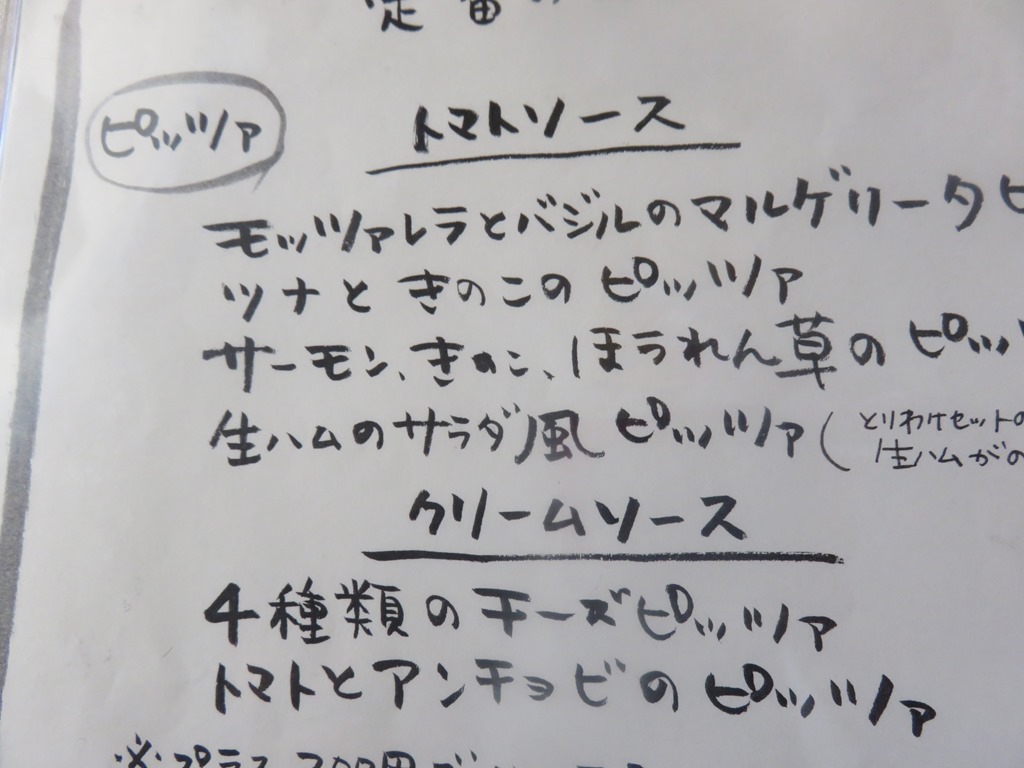 定番の
ピッツァ
トマトソース
モッツァレラとバジルのマルゲリータピ
ツナときのこの ピッツァ
サーモン、きのこ、ほうれん草の ピッツ
生ハムのサラダ風 ピッツァ(とりわけセットの
生ハムがの
クリームソース
4種類のチーズピッツァ
トマトとアンチョビのピッツァ
※プラス200円で